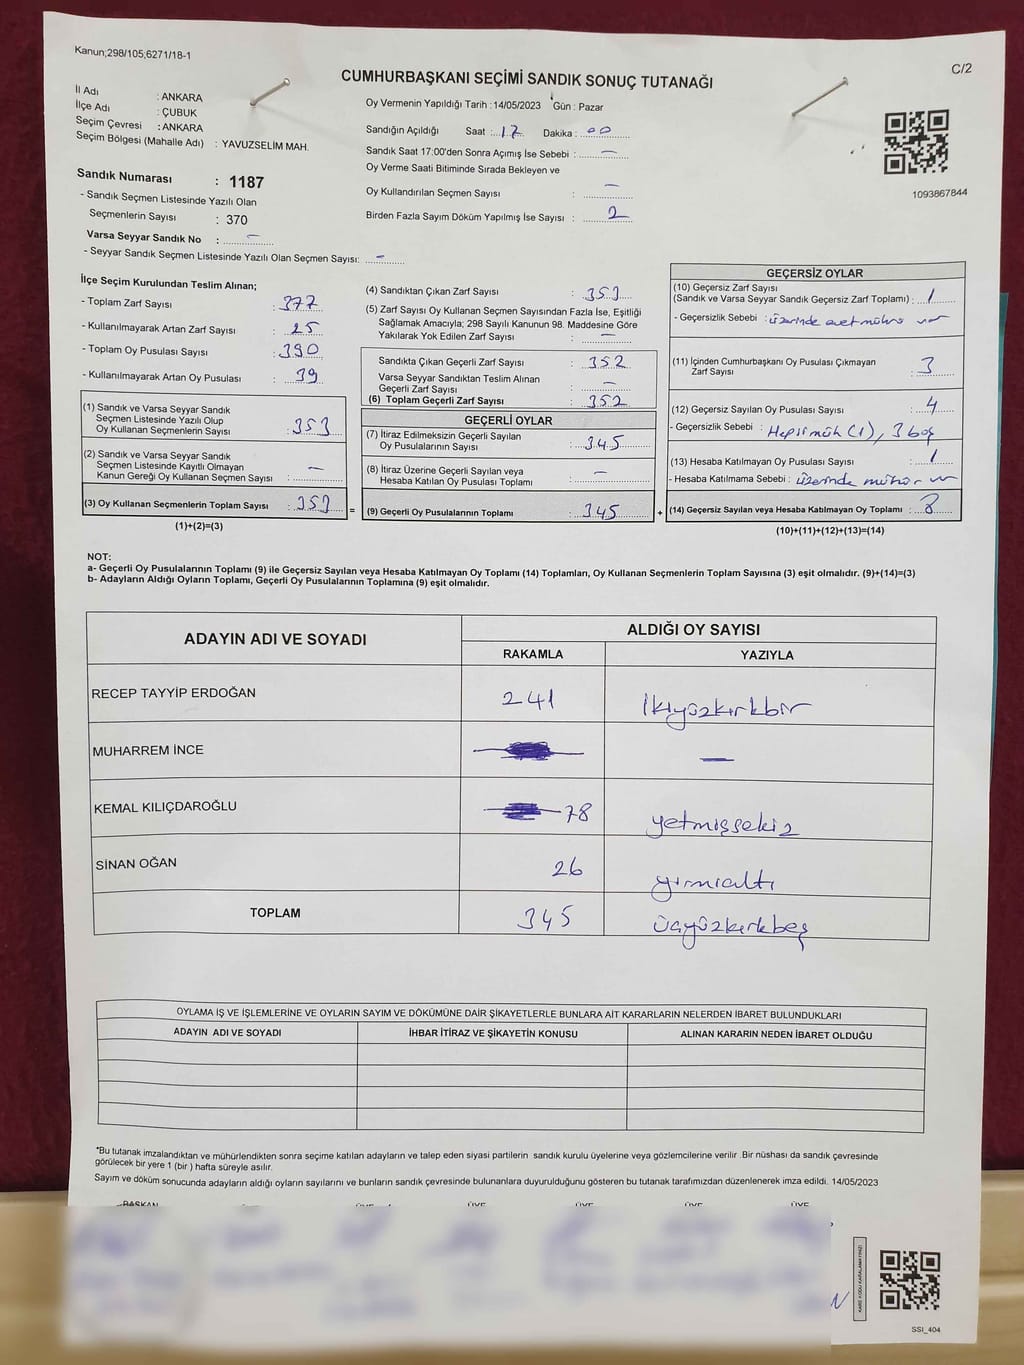 Kanun;298/105;6271/18-1
C/2
CUMHURBAŞKANI SEÇİMİ SANDIK SONUÇ TUTANAĞI
İl Adı : ANKARA
İlçe Adı : ÇUBUK
Seçim Çevresi : ANKARA
Seçim Bölgesi (Mahalle Adı) : YAVUZSELİM MAH.
Sandık Numarası : 1187
- Sandık Seçmen Listesinde Yazılı Olan
Seçmenlerin Sayısı : 370
Varsa Seyyar Sandık No : -
- Seyyar Sandık Seçmen Listesinde Yazılı Olan Seçmen Sayısı: -
Oy Vermenin Yapıldığı Tarih : 14/05/2023 Gün : Pazar
Sandığın Açıldığı Saat : 17 Dakika : 00
Sandık Saat 17:00'den Sonra Açımış İse Sebebi : -
Oy Verme Saati Bitiminde Sırada Bekleyen ve
Oy Kullandırılan Seçmen Sayısı : -
Birden Fazla Sayım Döküm Yapılmış İse Sayısı : 2
1093867844
İlçe Seçim Kurulundan Teslim Alınan;
- Toplam Zarf Sayısı : 377
- Kullanılmayarak Artan Zarf Sayısı : 25
- Toplam Oy Pusulası Sayısı : 390
- Kullanılmayarak Artan Oy Pusulası : 39
(1) Sandık ve Varsa Seyyar Sandık
Seçmen Listesinde Yazılı Olup
Oy Kullanan Seçmenlerin Sayısı : 353
(2) Sandık ve Varsa Seyyar Sandık
Seçmen Listesinde Kayıtlı Olmayan
Kanun Gereği Oy Kullanan Seçmen Sayısı : -
(3) Oy Kullanan Seçmenlerin Toplam Sayısı : 353
(1)+(2)=(3)
(4) Sandıktan Çıkan Zarf Sayısı : 353
(5) Zarf Sayısı Oy Kullanan Seçmen Sayısından Fazla İse, Eşitliği
Sağlamak Amacıyla; 298 Sayılı Kanunun 98. Maddesine Göre
Yakılarak Yok Edilen Zarf Sayısı : -
Sandıkta Çıkan Geçerli Zarf Sayısı : 352
Varsa Seyyar Sandıktan Teslim Alınan
Geçerli Zarf Sayısı : -
(6) Toplam Geçerli Zarf Sayısı : 352
GEÇERLİ OYLAR
(7) İtiraz Edilmeksizin Geçerli Sayılan
Oy Pusulalarının Sayısı : 345
(8) İtiraz Üzerine Geçerli Sayılan veya
Hesaba Katılan Oy Pusulası Toplamı : -
= (9) Geçerli Oy Pusulalarının Toplamı : 345
GEÇERSİZ OYLAR
(10) Geçersiz Zarf Sayısı
(Sandık ve Varsa Seyyar Sandık Geçersiz Zarf Toplamı) : 1
- Geçersizlik Sebebi : üzerinde evet mührü var
(11) İçinden Cumhurbaşkanı Oy Pusulası Çıkmayan
Zarf Sayısı : 3
(12) Geçersiz Sayılan Oy Pusulası Sayısı : 4
- Geçersizlik Sebebi : Hepsi müh (1), 3 boş
(13) Hesaba Katılmayan Oy Pusulası Sayısı : 1
- Hesaba Katılmama Sebebi : üzerinde mühür var
+ (14) Geçersiz Sayılan veya Hesaba Katılmayan Oy Toplamı : 8
(10)+(11)+(12)+(13)=(14)
NOT:
a- Geçerli Oy Pusulalarının Toplamı (9) ile Geçersiz Sayılan veya Hesaba Katılmayan Oy Toplamı (14) Toplamları, Oy Kullanan Seçmenlerin Toplam Sayısına (3) eşit olmalıdır. (9)+(14)=(3)
b- Adayların Aldığı Oyların Toplamı, Geçerli Oy Pusulalarının Toplamına (9) eşit olmalıdır.
ADAYIN ADI VE SOYADI ALDIĞI OY SAYISI
RAKAMLA YAZIYLA
RECEP TAYYİP ERDOĞAN 241 İkiyüzkırkbir
MUHARREM İNCE -
KEMAL KILIÇDAROĞLU 78 yetmişsekiz
SİNAN OĞAN 26 yirmialtı
TOPLAM 345 üçyüzkırkbeş
OYLAMA İŞ VE İŞLEMLERİNE VE OYLARIN SAYIM VE DÖKÜMÜNE DAİR ŞİKAYETLERLE BUNLARA AİT KARARLARIN NELERDEN İBARET BULUNDUKLARI
ADAYIN ADI VE SOYADI İHBAR İTİRAZ VE ŞİKAYETİN KONUSU ALINAN KARARIN NEDEN İBARET OLDUĞU
*Bu tutanak imzalandıktan ve mühürlendikten sonra seçime katılan adayların ve talep eden siyasi partilerin sandık kurulu üyelerine veya gözlemcilerine verilir .Bir nüshası da sandık çevresinde
görülecek bir yere 1 (bir ) hafta süreyle asılır.
Sayım ve döküm sonucunda adayların aldığı oyların sayılarını ve bunların sandık çevresinde bulunanlara duyurulduğunu gösteren bu tutanak tarafımızdan düzenlenerek imza edildi. 14/05/2023
BAŞKAN ÜYE ÜYE ÜYE ÜYE ÜYE
KARE KODU KARALAMAYINIZ!
SSI_404